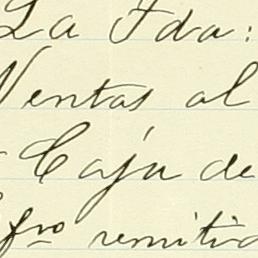 La Fda:
Ventas al
Caja de
fro remitid